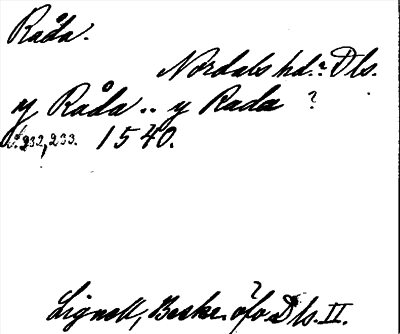 Råda.
Nordals hd. Dls.
y Råda .. y Rada ?
s. 232, 233. 1540.
Lignell, Beskr. öfv. Dls. II.